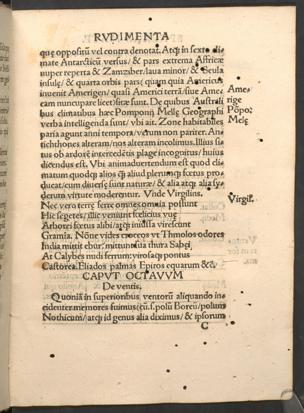 RVDIMENTA
que oppositũ vel contra denotat. Atq; in sexto cli
mate Antarcticũ versus / & pars extrema Affricæ
nuper reperta & Zamziber / Iaua minor / & Seula
insulę / & quarta orbis pars (quam quia Americus
inuenit Amerigen / quasi Americi terrã / siue Ame
ricam nuncupare licet) sitæ sunt. De quibus Australi
bus climatibus hæc Pomponij Melę Geographi
verba intelligenda sunt / vbi ait. Zone habitabiles
paria agunt anni tempora / verum non pariter. An
tichthones alteram / nos alteram incolimus. Illius si
tus ob ardorẽ intercedẽtis plagę incognitus / huius
dicendus est. Vbi animaduertendum est quod cli
matum quodq; alios q̃ aliud plerunq; fœtus pro
ducat / cum diuersę sunt naturæ / & alia atq; alia sy
derum virtute moderantur. Vnde Virgilius.
Nec vero terræ ferre omnes omnia possunt
Hic segetes / illic veniunt fœlicius vuę
Arborei fœtus alibi / atq; iniussa virescunt
Gramia. Nõne vides croceos vt Thmolos odores
India mittit ebur / mittunt sua thura Sabęi
At Calybes nudi ferrum / virosaq; pontus
Castorea. Eliados palmas Epiros equarum &c̃.
CAPVT OCTAVVM
De ventis.
Quoniã in superioribus / ventorũ aliquando in
cidenter memores fuimus (cũ .s. polũ Boreũ / polum
Nothicum / atq; id genus alia diximus / & ipsorum
C
Ame
rige
Põpo:
Melę
Virgil.